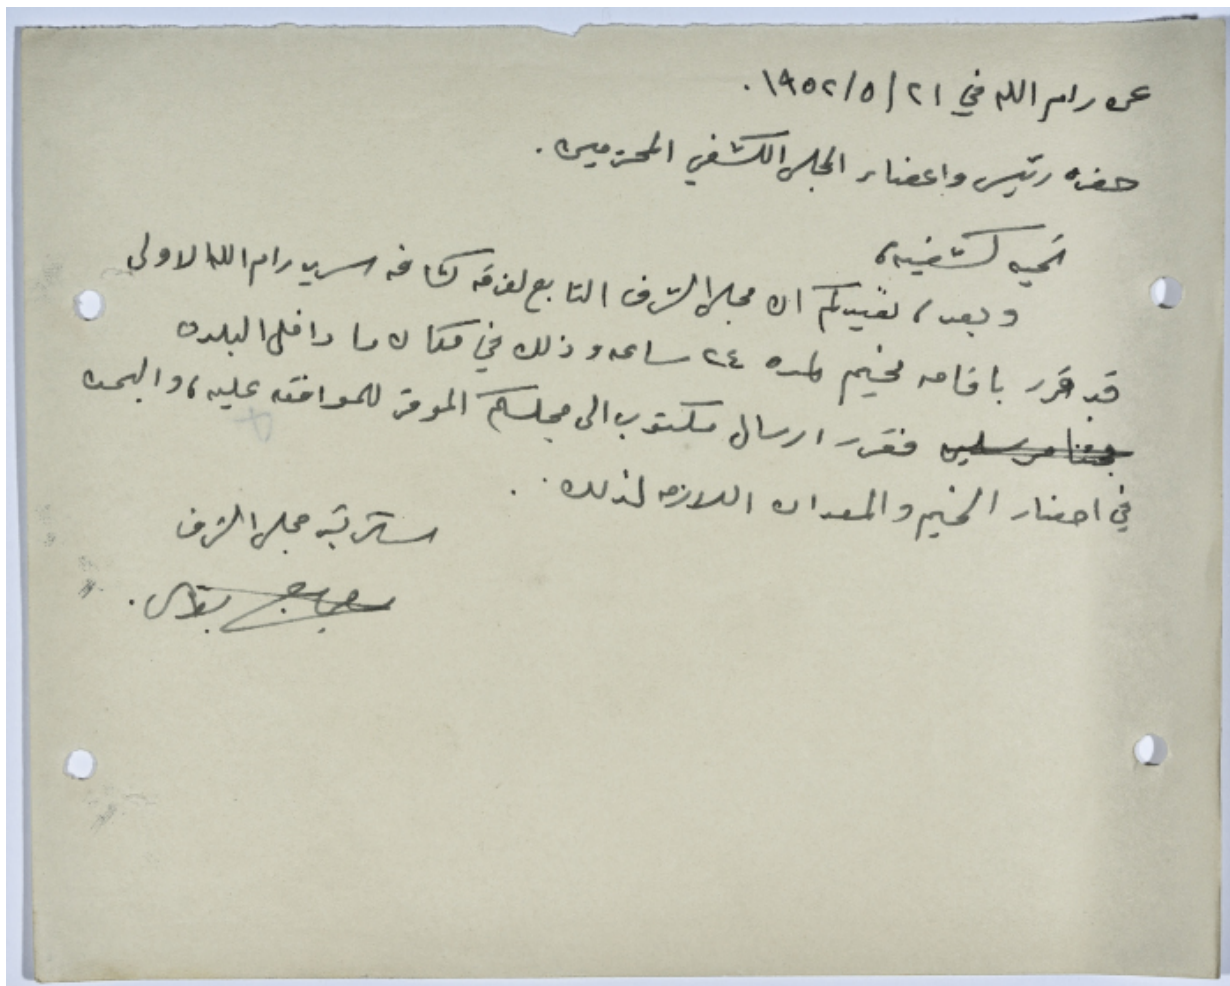 عن رام الله في ٢١/٥/١٩٥٢.
حضرة رئيس واعضاء المجلس الكشفي المحترمين.
تحيه كشفيه،
وبعد، نفيدكم ان مجلس الشرف التابع لفرقة كشافه سريه رام الله الاولى
قد قرر باقامه مخيم لمده ٢٤ ساعه وذلك في مكان ما داخل البلده
فقرر ارسال مكتوب الى مجلسكم الموقر للموافقه عليه، والبحث
في احضار الخيم والمعدات اللازمه لذلك.
سكرتير مجلس الشرف